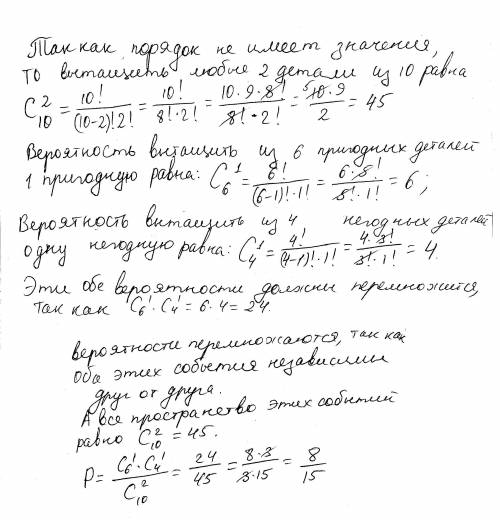 Так как порядок не имеет значения,
то вытащить любые 2 детали из 10 равна
C₁₀² = 10!/((10-2)!2!) = 10!/(8!·2!) = (10·9·8!)/(8!·2!) = (10·9)/2 = 45
Вероятность вытащить из 6 пригодных деталей
1 пригодную равна: C₆¹ = 6!/((6-1)!·1!) = (6·5!)/(5!·1!) = 6;
Вероятность вытащить из 4 негодных деталей
одну негодную равна: C₄¹ = 4!/((4-1)!·1!) = (4·3!)/(3!·1!) = 4.
Эти обе вероятности должны перемножится,
так как C₆¹·C₄¹ = 6·4 = 24.
вероятности перемножаются, так как
оба этих события независимы
друг от друга.
А все пространство этих событий
равно C₁₀² = 45.
P = (C₆¹·C₄¹)/C₁₀² = 24/45 = (8·3)/(3·15) = 8/15